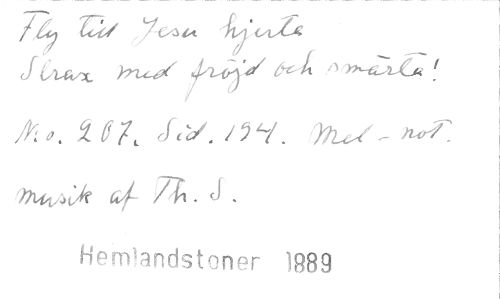 Fly till Jesu hjerta
Strax med fröjd och smärta!
N:o. 207. Sid. 194. Mel-not.
musik af Th. S.
Hemlandstoner 1889